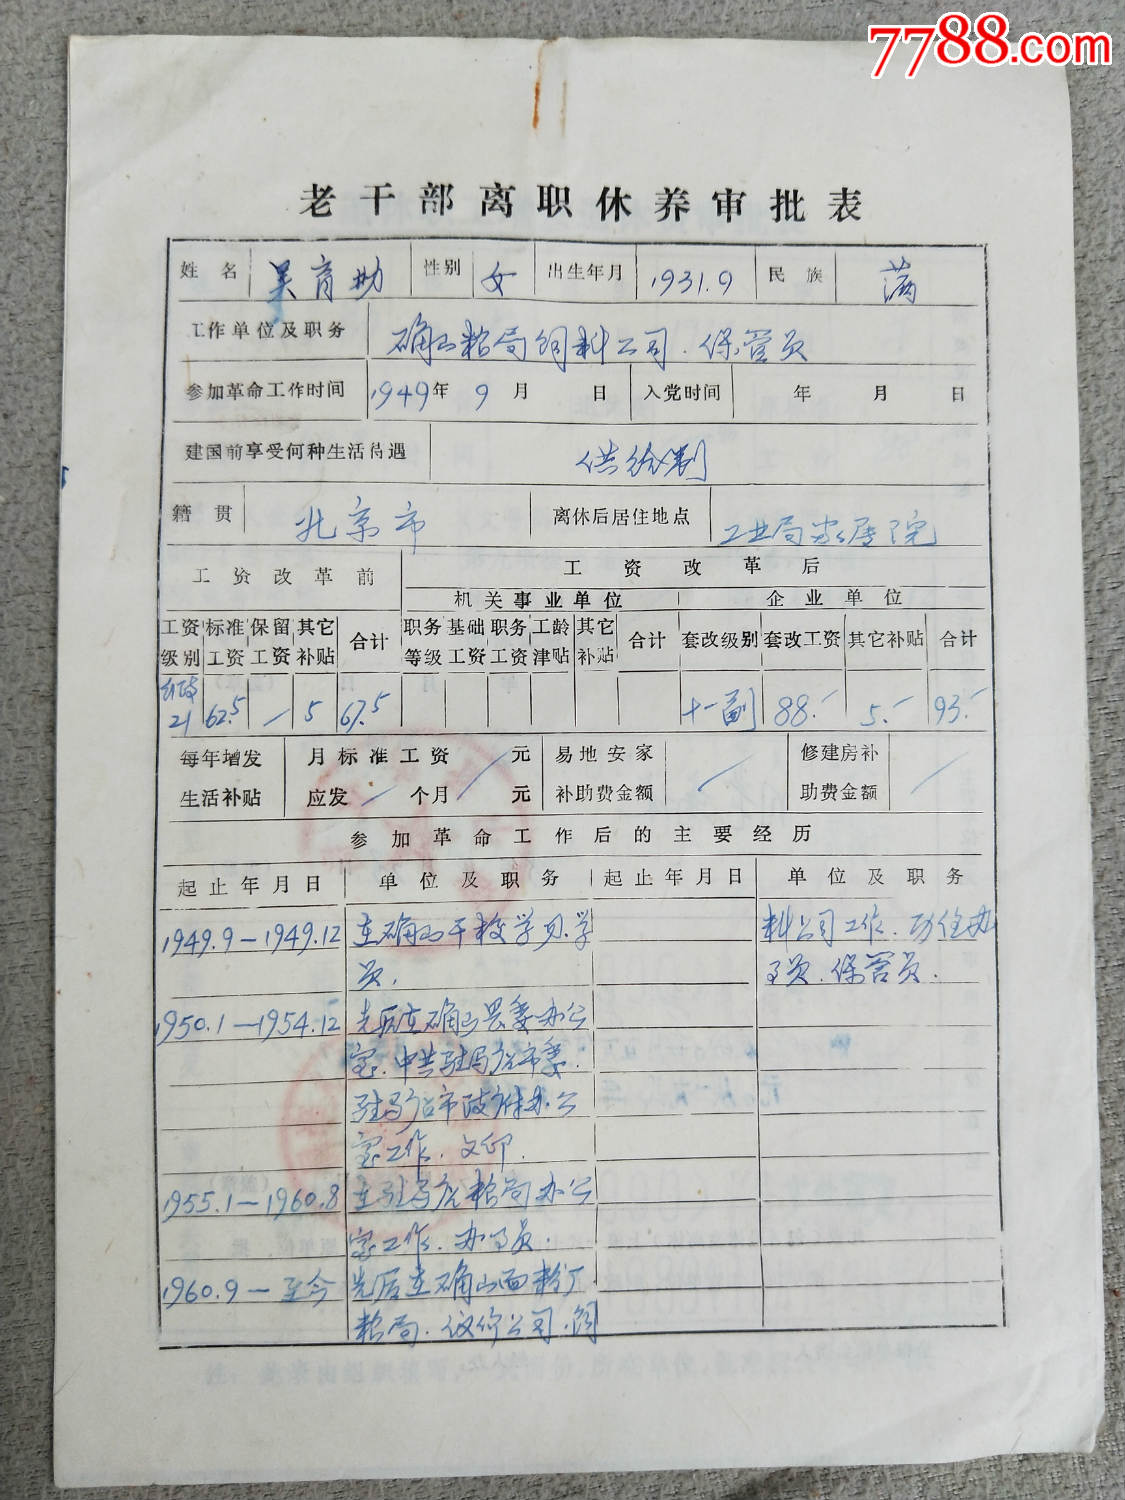 7788.com
老干部离职休养审批表
姓名 吴育勋 性别 女 出生年月 1931.9 民族 满
工作单位及职务 确山粮局饲料公司.保管员
参加革命工作时间 1949年9月 日 入党时间 年 月 日
建国前享受何种生活待遇 供给制
籍贯 北京市 离休后居住地点 工业局家属院
工资改革前 工资改革后
机关事业单位 企业单位
工资级别 标准工资 保留工资 其它补贴 合计 职务等级 基础工资 职务工资 工龄津贴 其它补贴 合计 套改级别 套改工资 其它补贴 合计
行政21 62.5 — 5 67.5 十一副 88.- 5.- 93.-
每年增发生活补贴 月标准工资 / 元 应发 / 个月 / 元 易地安家补助费金额 / 修建房补助费金额 /
参加革命工作后的主要经历
起止年月日 单位及职务 起止年月日 单位及职务
1949.9—1949.12 在确山干校学习.学
员.
1950.1—1954.12 先后在确山县委办公
室.中共驻马店市委.
驻马店市政府办公
室工作.文印.
1955.1—1960.8 在驻马店粮局办公
室工作.办事员.
1960.9—至今 先后在确山面粉厂.
粮局.议价公司.饲
料公司工作.历任办
事员.保管员.